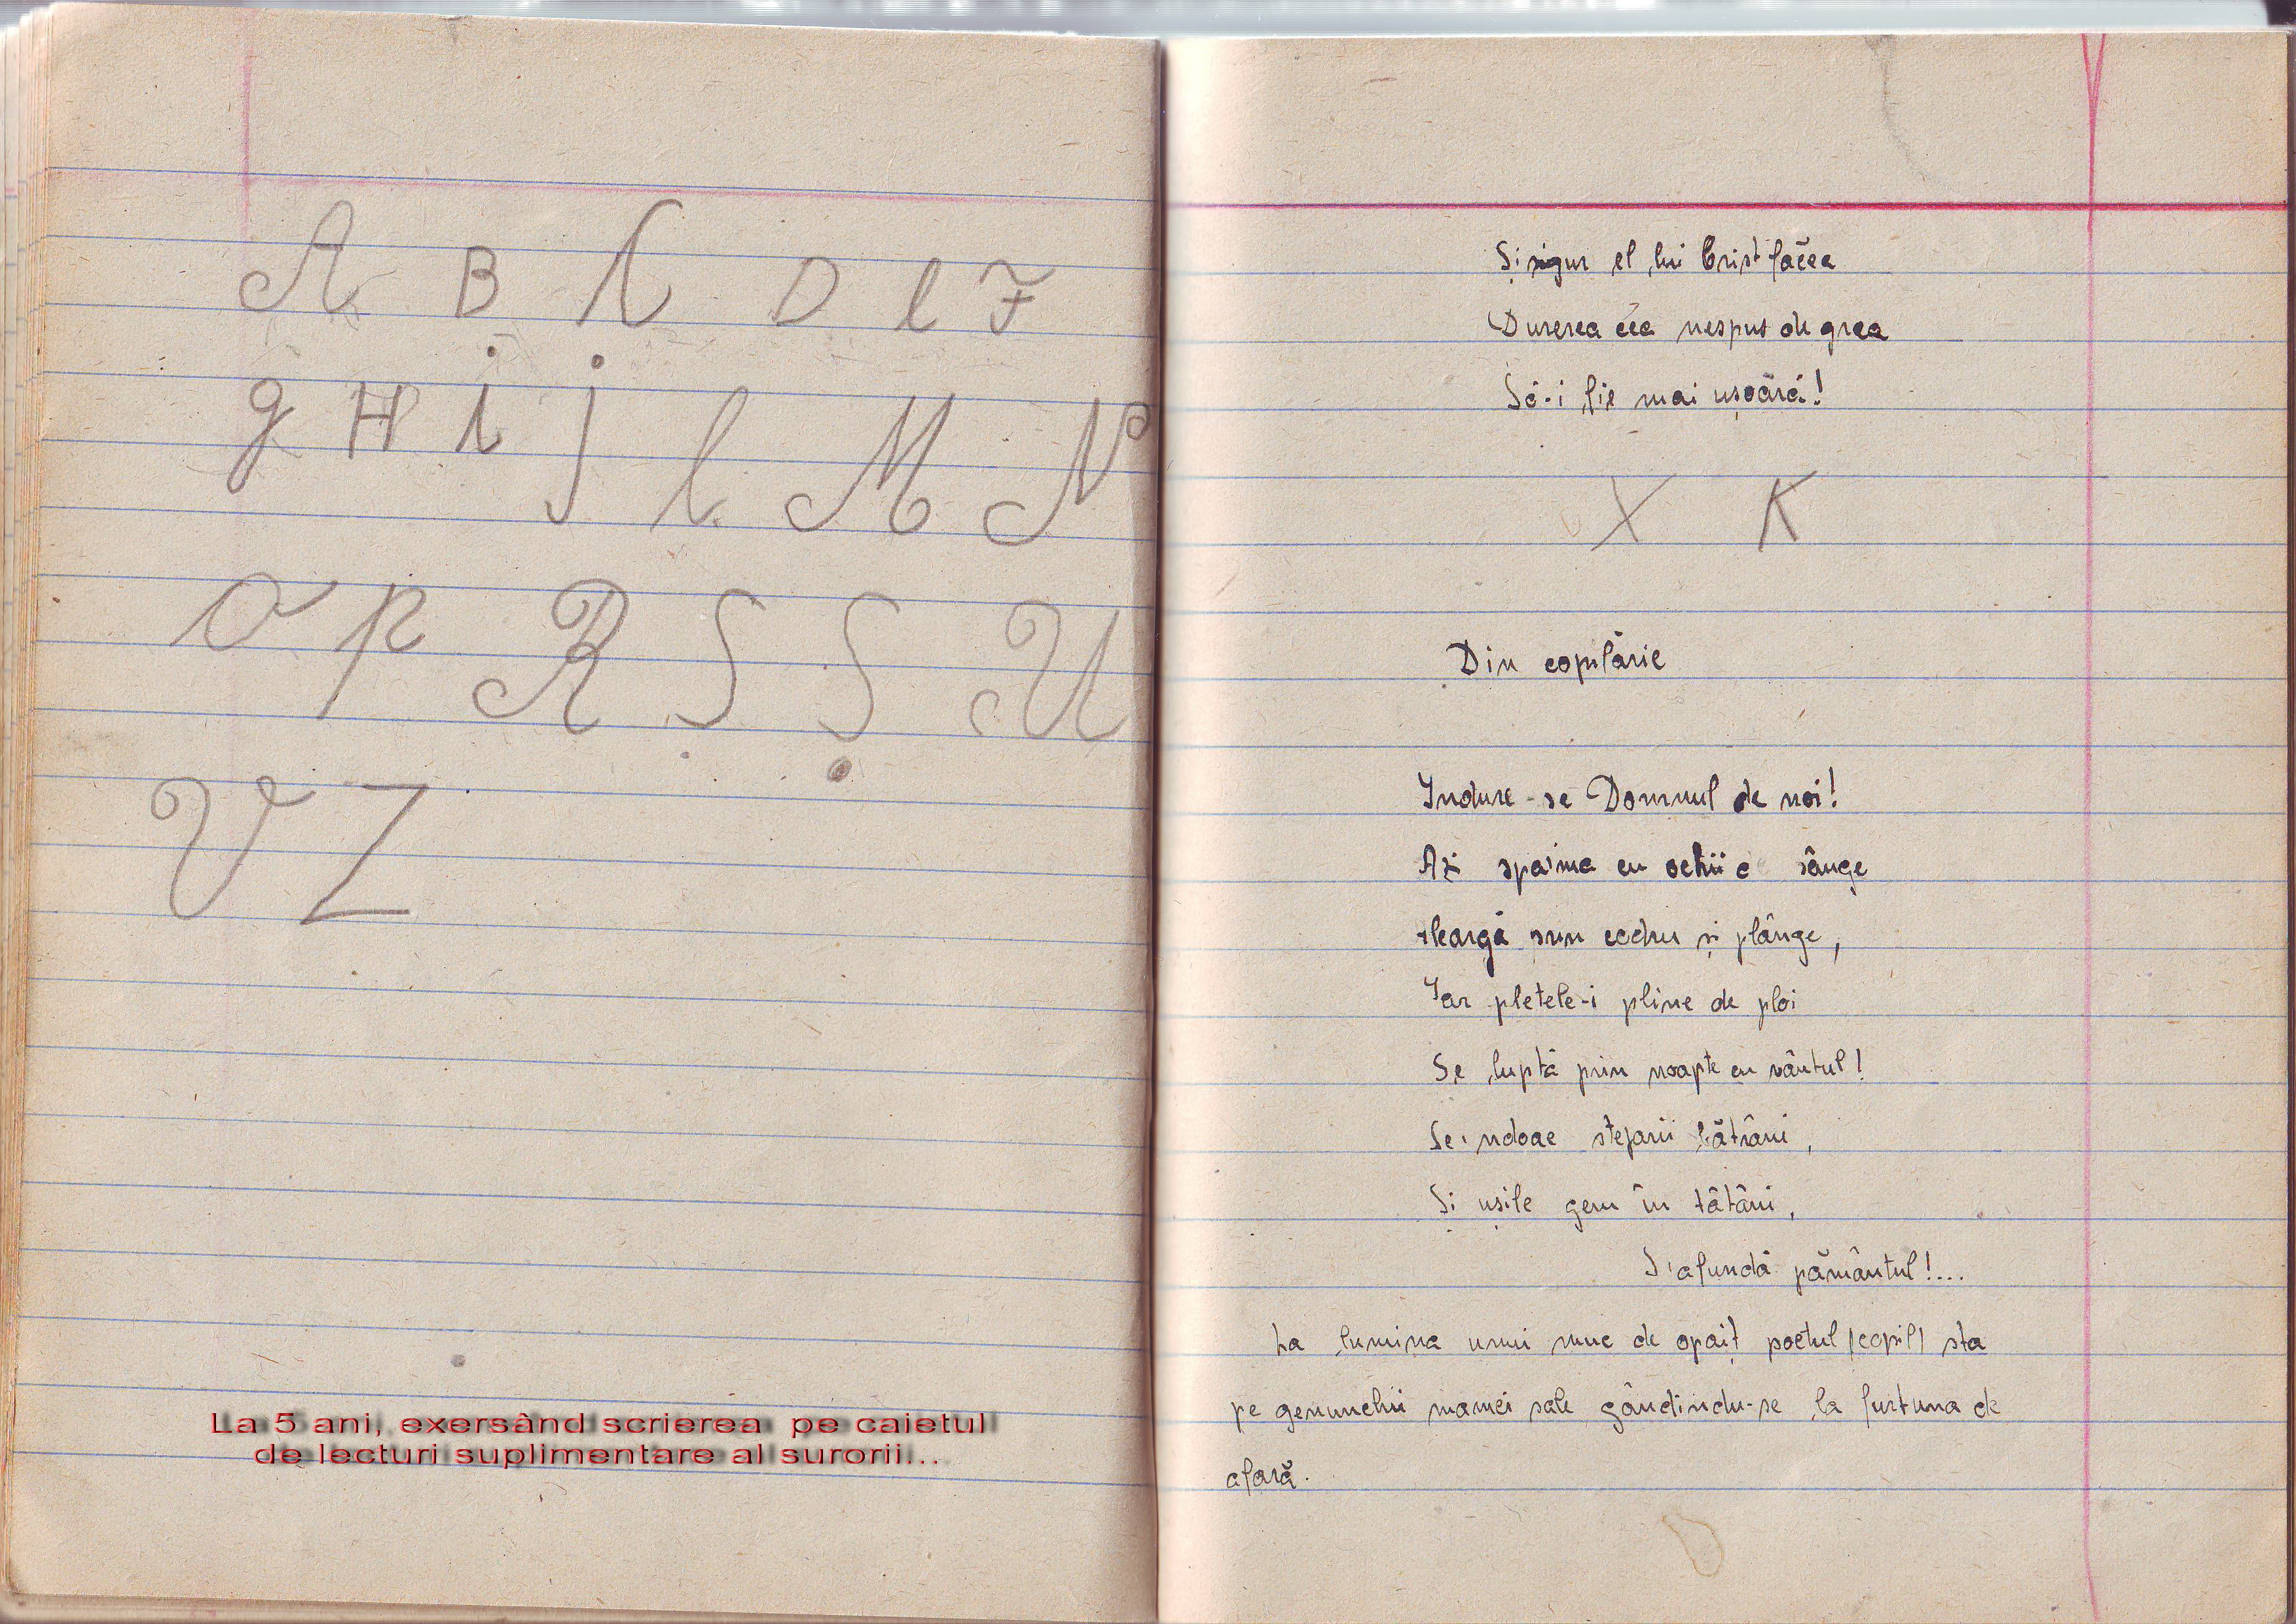 A B C D E F
g H i j l M N
O P R S Ș U
V Z
La 5 ani, exersând scrierea pe caietul
de lecturi suplimentare al surorii...
Și sigur el lui Crist făcea
Durerea cea nespus de grea
Să-i fie mai ușoară!
X K
Din copilărie
Indure-se Domnul de noi!
Azi spaima cu ochii sânge
Aleargă prin codru și plânge,
Iar pletele-i pline de ploi
Se luptă prin noapte cu vântul!
Se-ndoae stejarii bătrâni,
Și ușile gem în țâțâni,
S-afundă pământul!...
La lumina unui muc de opaiț poetul (copil) sta
pe genunchii mamei sale gândindu-se la furtuna de
afară.